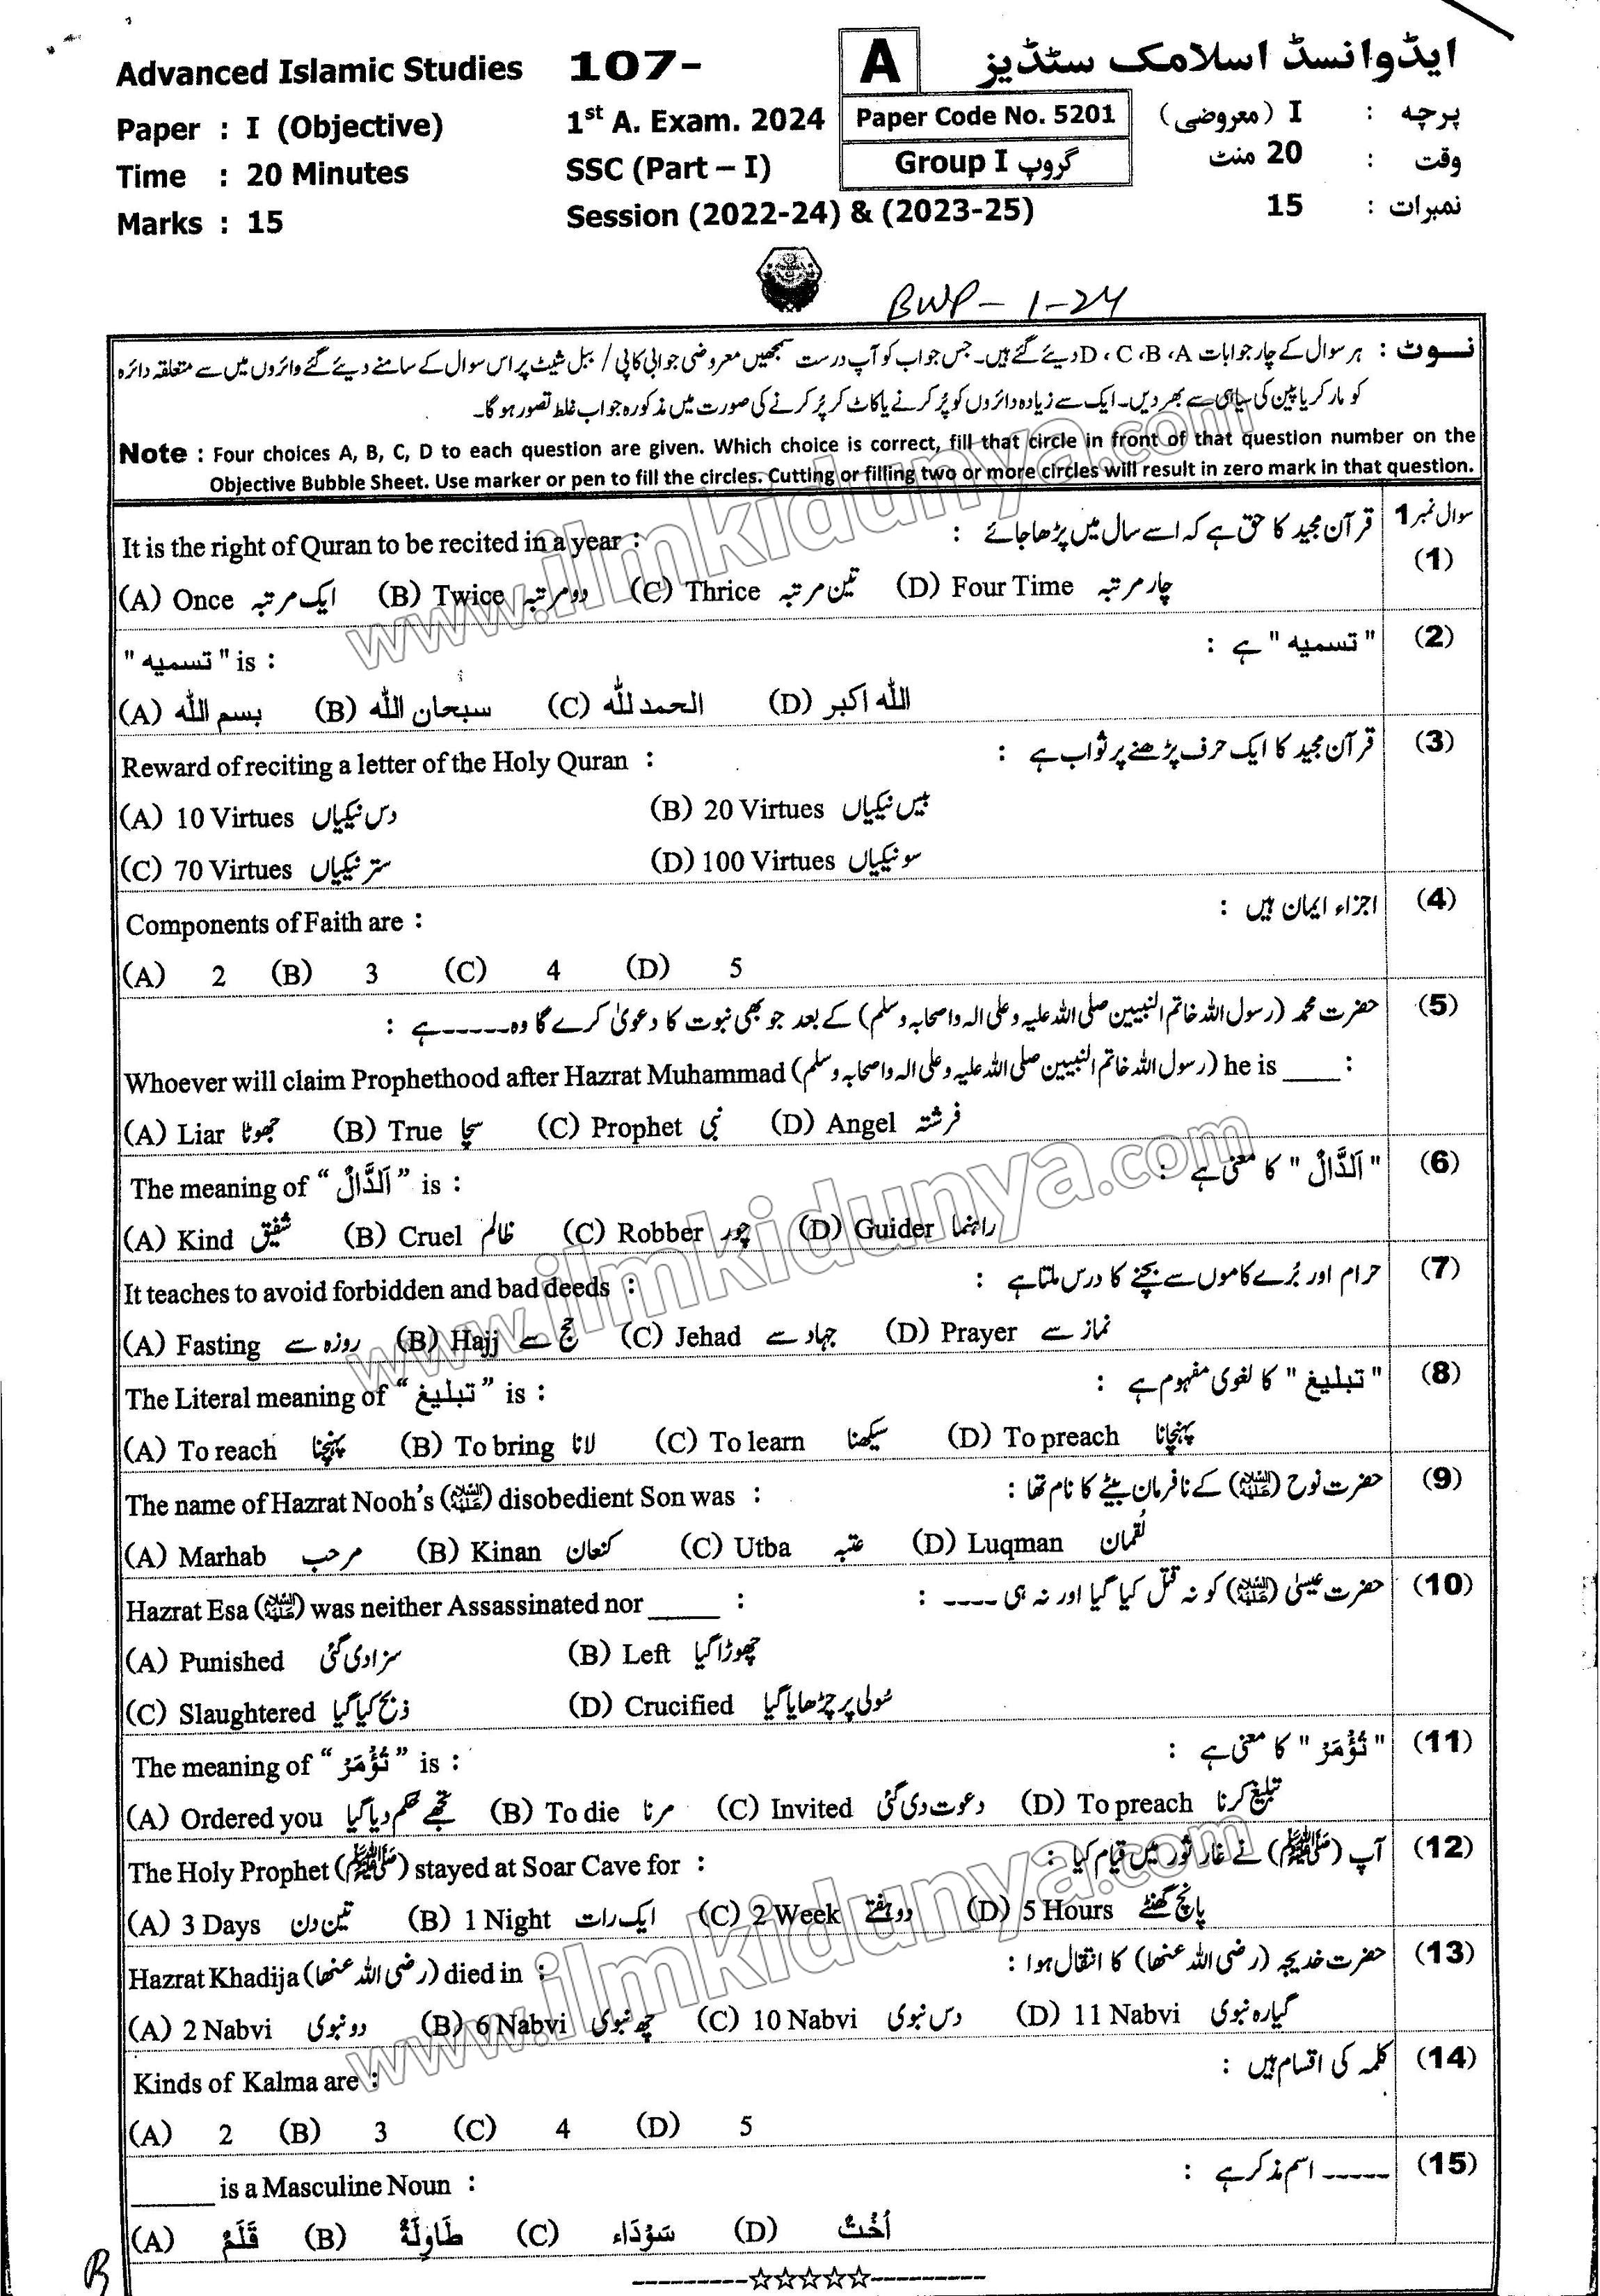 Advanced Islamic Studies 107- A ایڈوانسڈ اسلامک سٹڈیز
Paper : I (Objective) 1st A. Exam. 2024 Paper Code No. 5201 پرچہ : I (معروضی)
Time : 20 Minutes SSC (Part – I) Group I گروپ وقت : 20 منٹ
Marks : 15 Session (2022-24) & (2023-25) نمبرات : 15
BWP - 1-24
نوٹ : ہر سوال کے چار جوابات A، B، C، D دیئے گئے ہیں۔ جس جواب کو آپ درست سمجھیں معروضی جوابی کاپی / ببل شیٹ پر اس سوال کے سامنے دیئے گئے دائروں میں سے متعلقہ دائرہ
کو مارکر یا پین کی سیاہی سے بھر دیں۔ ایک سے زیادہ دائروں کو پُر کرنے یا کاٹ کر پُر کرنے کی صورت میں مذکورہ جواب غلط تصور ہوگا۔
Note : Four choices A, B, C, D to each question are given. Which choice is correct, fill that circle in front of that question number on the
Objective Bubble Sheet. Use marker or pen to fill the circles. Cutting or filling two or more circles will result in zero mark in that question.
سوال نمبر 1
(1) قرآن مجید کا حق ہے کہ اسے سال میں پڑھا جائے :
It is the right of Quran to be recited in a year :
(A) Once ایک مرتبہ (B) Twice دو مرتبہ (C) Thrice تین مرتبہ (D) Four Time چار مرتبہ
(2) "تسمیہ" ہے :
"تسمیہ" is :
(A) بسم اللہ (B) سبحان اللہ (C) الحمد للہ (D) اللہ اکبر
(3) قرآن مجید کا ایک حرف پڑھنے پر ثواب ہے :
Reward of reciting a letter of the Holy Quran :
(A) 10 Virtues دس نیکیاں (B) 20 Virtues بیس نیکیاں
(C) 70 Virtues ستر نیکیاں (D) 100 Virtues سو نیکیاں
(4) اجزاء ایمان ہیں :
Components of Faith are :
(A) 2 (B) 3 (C) 4 (D) 5
(5) حضرت محمد (رسول اللہ خاتم النبیین صلی اللہ علیہ وعلی الہ واصحابہ وسلم) کے بعد جو بھی نبوت کا دعویٰ کرے گا وہ-----ہے :
Whoever will claim Prophethood after Hazrat Muhammad (رسول اللہ خاتم النبیین صلی اللہ علیہ وعلی الہ واصحابہ وسلم) he is ____ :
(A) Liar جھوٹا (B) True سچا (C) Prophet نبی (D) Angel فرشتہ
(6) "اَلدَّالُ" کا معنی ہے :
The meaning of “اَلدَّالُ” is :
(A) Kind شفیق (B) Cruel ظالم (C) Robber چور (D) Guider راہنما
(7) حرام اور بُرے کاموں سے بچنے کا درس ملتا ہے :
It teaches to avoid forbidden and bad deeds :
(A) Fasting روزہ سے (B) Hajj حج سے (C) Jehad جہاد سے (D) Prayer نماز سے
(8) "تبلیغ" کا لغوی مفہوم ہے :
The Literal meaning of “تبلیغ” is :
(A) To reach پہنچنا (B) To bring لانا (C) To learn سیکھنا (D) To preach پہنچانا
(9) حضرت نوح (علیہ السلام) کے نافرمان بیٹے کا نام تھا :
The name of Hazrat Nooh's (علیہ السلام) disobedient Son was :
(A) Marhab مرحب (B) Kinan کنعان (C) Utba عتبہ (D) Luqman لقمان
(10) حضرت عیسیٰ (علیہ السلام) کو نہ قتل کیا گیا اور نہ ہی ---- :
Hazrat Esa (علیہ السلام) was neither Assassinated nor _____ :
(A) Punished سزا دی گئی (B) Left چھوڑا گیا
(C) Slaughtered ذبح کیا گیا (D) Crucified سُولی پر چڑھایا گیا
(11) "تُؤْمَرُ" کا معنی ہے :
The meaning of “تُؤْمَرُ” is :
(A) Ordered you تجھے حکم دیا گیا (B) To die مرنا (C) Invited دعوت دی گئی (D) To preach تبلیغ کرنا
(12) آپ (ﷺ) نے غار ثور میں قیام کیا :
The Holy Prophet (ﷺ) stayed at Soar Cave for :
(A) 3 Days تین دن (B) 1 Night ایک رات (C) 2 Week دو ہفتے (D) 5 Hours پانچ گھنٹے
(13) حضرت خدیجہ (رضی اللہ عنھا) کا انتقال ہوا :
Hazrat Khadija (رضی اللہ عنھا) died in :
(A) 2 Nabvi دو نبوی (B) 6 Nabvi چھ نبوی (C) 10 Nabvi دس نبوی (D) 11 Nabvi گیارہ نبوی
(14) کلمہ کی اقسام ہیں :
Kinds of Kalma are :
(A) 2 (B) 3 (C) 4 (D) 5
(15) ----- اسم مذکر ہے :
______ is a Masculine Noun :
(A) قَلَمٌ (B) طَاوِلَةٌ (C) سَوْدَاء (D) اُخْتٌ
----------☆☆☆☆☆----------
www.ilmkidunya.com
www.ilmkidunya.com
www.ilmkidunya.com